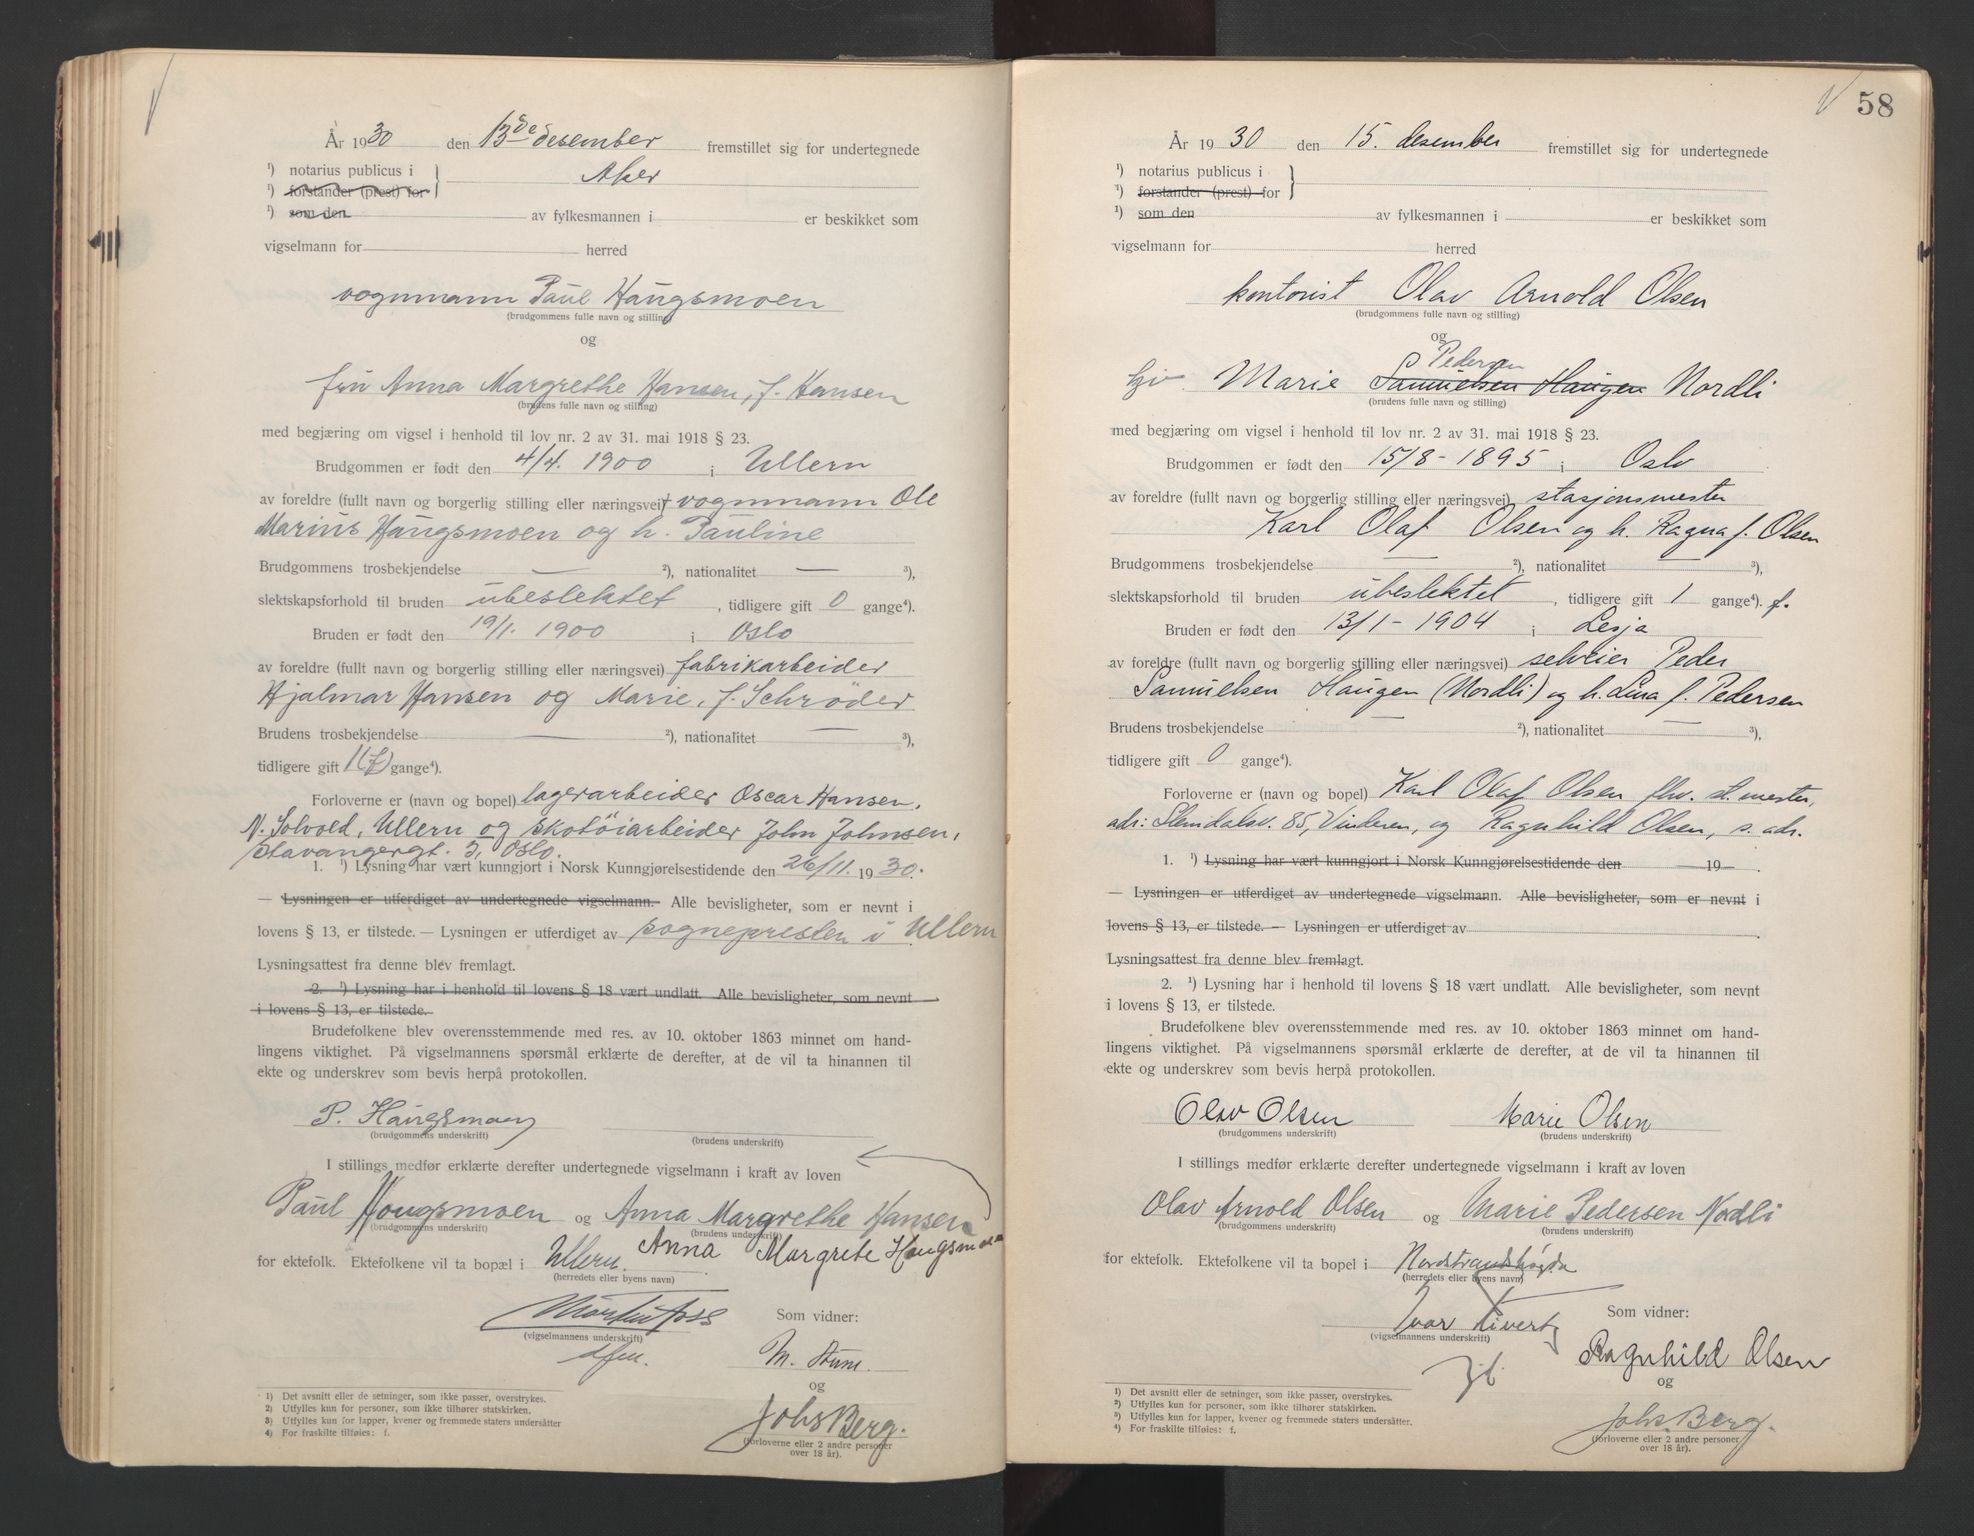 År 1930 den 13de desember fremstillet sig for undertegnede
¹) notarius publicus i } Aker
¹) forstander (prest) for
¹) som den av fylkesmannen i er beskikket som
vigselmann for herred
vognmann Paul Haugsmoen
(brudgommens fulle navn og stilling)
og
fru Anna Margrethe Hansen, f. Hansen
(brudens fulle navn og stilling)
med begjæring om vigsel i henhold til lov nr. 2 av 31. mai 1918 § 23.
Brudgommen er født den 4/4. 1900 i Ullern
av foreldre (fullt navn og borgerlig stilling eller næringsvei) vognmann Ole
Marius Haugsmoen og h. Pauline
Brudgommens trosbekjendelse — ²), nationalitet — ³),
slektskapsforhold til bruden ubeslektet, tidligere gift 0 gange⁴).
Bruden er født den 19/1. 1900 i Oslo
av foreldre (fullt navn og borgerlig stilling eller næringsvei) fabrikarbeider
Hjalmar Hansen og Marie, f. Schrøder
Brudens trosbekjendelse — ²), nationalitet — ³),
tidligere gift 1(f) gange⁴).
Forloverne er (navn og bopel) lagerarbeider Oscar Hansen,
N. Solvold, Ullern og skotøiarbeider John Johnsen,
Stavangergt. 3, Oslo.
1. ¹) Lysning har vært kunngjort i Norsk Kunngjørelsestidende den 26/11. 1930.
— Lysningen er utferdiget av undertegnede vigselmann. Alle bevisligheter, som er nevnt i
lovens § 13, er tilstede. — Lysningen er utferdiget av sognepresten i Ullern
Lysningsattest fra denne blev fremlagt.
2. ¹) Lysning har i henhold til lovens § 18 vært undlatt. Alle bevisligheter, som nevnt
i lovens § 13, er tilstede.
Brudefolkene blev overensstemmende med res. av 10. oktober 1863 minnet om hand-
lingens viktighet. På vigselmannens spørsmål erklærte de derefter, at de vil ta hinannen til
ekte og underskrev som bevis herpå protokollen.
P. Haugsmoen
(brudgommens underskrift) (brudens underskrift)
I stillings medfør erklærte derefter undertegnede vigselmann i kraft av loven
Paul Hougsmoen og Anna Margrethe Hansen
(brudgommens underskrift) (brudens underskrift)
Anna Margrete Haugsmoen
for ektefolk. Ektefolkene vil ta bopæl i Ullern.
(herredets eller byens navn)
Som vidner:
(vigselmannens underskrift)
og
Johs Berg.
(forloverne eller 2 andre personer
over 18 år).
1) Det avsnitt eller de setninger, som ikke passer, overstrykes.
2) Utfylles kun for personer, som ikke tilhører statskirken.
3) Utfylles kun for lapper, kvener og fremmede staters undersåtter
4) For fraskilte tilføies: f.
58
År 1930 den 15. desember fremstillet sig for undertegnede
¹) notarius publicus i }
¹) forstander (prest) for
¹) som den av fylkesmannen i er beskikket som
vigselmann for herred
kontorist Olav Arnold Olsen
(brudgommens fulle navn og stilling)
og
Pedersen
Marie Samuelsen Haugen Nordli
(brudens fulle navn og stilling)
med begjæring om vigsel i henhold til lov nr. 2 av 31. mai 1918 § 23.
Brudgommen er født den 15/8-1895 i Oslo
av foreldre (fullt navn og borgerlig stilling eller næringsvei) stasjonsmester
Karl Olaf Olsen og h. Ragna f. Olsen
Brudgommens trosbekjendelse — ²), nationalitet — ³),
slektskapsforhold til bruden ubeslektet, tidligere gift 1 gange⁴). f.
Bruden er født den 13/1-1904 i Lesja
av foreldre (fullt navn og borgerlig stilling eller næringsvei) selveier Peder
Samuelsen Haugen (Nordli) og h. Lina f. Pedersen
Brudens trosbekjendelse ²), nationalitet ³),
tidligere gift 0 gange⁴).
Forloverne er (navn og bopel) Karl Olaf Olsen fhv. st.mester,
adr: Slemdalsv. 85, Vinderen, og Ragnhild Olsen, s. adr.
1. ¹) Lysning har vært kunngjort i Norsk Kunngjørelsestidende den — 19 — .
— Lysningen er utferdiget av undertegnede vigselmann. Alle bevisligheter, som er nevnt i
lovens § 13, er tilstede. — Lysningen er utferdiget av
Lysningsattest fra denne blev fremlagt.
2. ¹) Lysning har i henhold til lovens § 18 vært undlatt. Alle bevisligheter, som nevnt
i lovens § 13, er tilstede.
Brudefolkene blev overensstemmende med res. av 10. oktober 1863 minnet om hand-
lingens viktighet. På vigselmannens spørsmål erklærte de derefter, at de vil ta hinannen til
ekte og underskrev som bevis herpå protokollen.
Olav Olsen Marie Olsen
(brudgommens underskrift) (brudens underskrift)
I stillings medfør erklærte derefter undertegnede vigselmann i kraft av loven
Olav Arnold Olsen og Marie Pedersen Nordli
(brudgommens underskrift) (brudens underskrift)
for ektefolk. Ektefolkene vil ta bopel i Nordstrandshøgda
(herredets eller byens navn)
Som vidner:
Ivar
(vigselmannens underskrift)
Ragnhild Olsen
og
Johs. Berg.
(forloverne eller 2 andre personer
over 18 år).
1) Det avsnitt eller de setninger, som ikke passer, overstrykes.
2) Utfylles kun for personer, som ikke tilhører statskirken.
3) Utfylles kun for lapper, kvener og fremmede staters undersåtter.
4) For fraskilte tilføies: f.